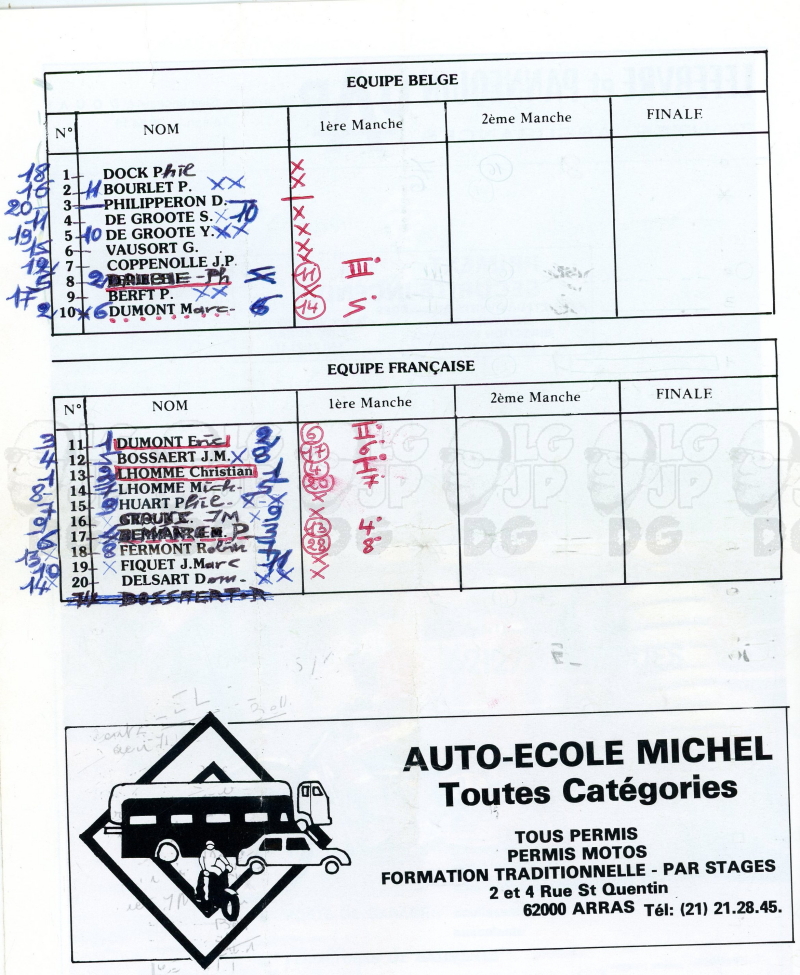 EQUIPE BELGE
N° NOM 1ère Manche 2ème Manche FINALE
18 1 DOCK Phil X
16 2 11 BOURLET P. XX X
20 3 PHILIPPERON D.
11 4 DE GROOTE S. X 10 X
19 5 10 DE GROOTE Y. XX X
15 6 VAUSORT G. X
7 COPPENOLLE J.P. X
8 Ph 11 III
17 9 BERFT P. XX X
2 10 X6 DUMONT Marc 6 14
EQUIPE FRANÇAISE
N° NOM 1ère Manche 2ème Manche FINALE
3 11 1 DUMONT Eric 2 6 II
4 12 BOSSAERT J.M. X 8 17 6
1 13 LHOMME Christian 1 4 I
8 14 LHOMME Mich 20 7
7 15 HUART Phil X
9 16 JM X
6 17 P 13 4
18 8 FERMONT Robin 28 8
13 19 X FIQUET J.Marc 11 X
10 20 DELSART Dom XX X
14
LG
JP
DG
LG
JP
DG
LG
JP
DG
AUTO-ECOLE MICHEL
Toutes Catégories
TOUS PERMIS
PERMIS MOTOS
FORMATION TRADITIONNELLE - PAR STAGES
2 et 4 Rue St Quentin
62000 ARRAS Tél: (21) 21.28.45.